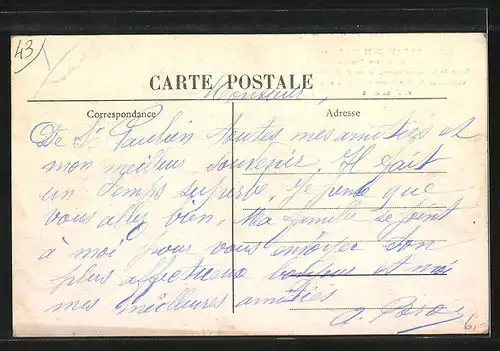 43
CARTE POSTALE
Monsieur,
Correspondance
Adresse
De St Paulien toutes mes amitiés et
mon meilleur souvenir, Il fait
un temps superbe, Je pense que
vous allez bien, Ma famille se joint
à moi pour vous envoyer son
plus affectueux et moi
mes meilleures amitiés